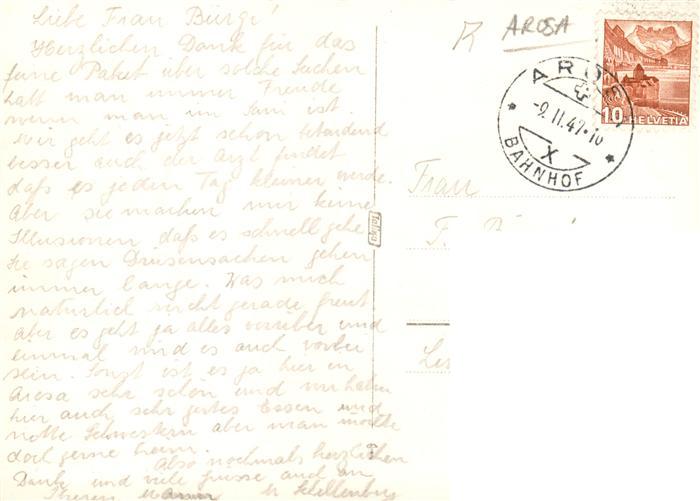 Liebe Frau Bürgi!
Herzlichen Dank für das
feine Paket über solche Sachen
hatt man immer Freude
wenn man im Sani ist.
Mir geht es jetzt schon bedeutend
besser auch der Arzt findet
dass es jeden Tag kleiner werde.
Aber sie machen mir keine
Illusionen dass es schnell gehe
sie sagen Drüsensachen gehen
immer lange. Was mich
natürlich nicht gerade freut
aber es geht ja alles vorüber und
einmal wird es auch vorbei
sein. Sonst ist es ja hier in
Arosa sehr schön und wir haben
hier auch sehr gutes Essen und
nette Schwestern aber man möchte
doch gerne heim.
Also nochmals herzlichen
Dank und viele Grüsse auch an
Ihren M Schellenberg
Tellko
R AROSA
AROSA
-9.II.42-10
X
BAHNHOF
10 HELVETIA
Frau
F.